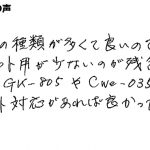 の声
の種類が多くて良いので
ット用が少ないのが残念
GK-805やCwe-035
ト対応があれば良かった